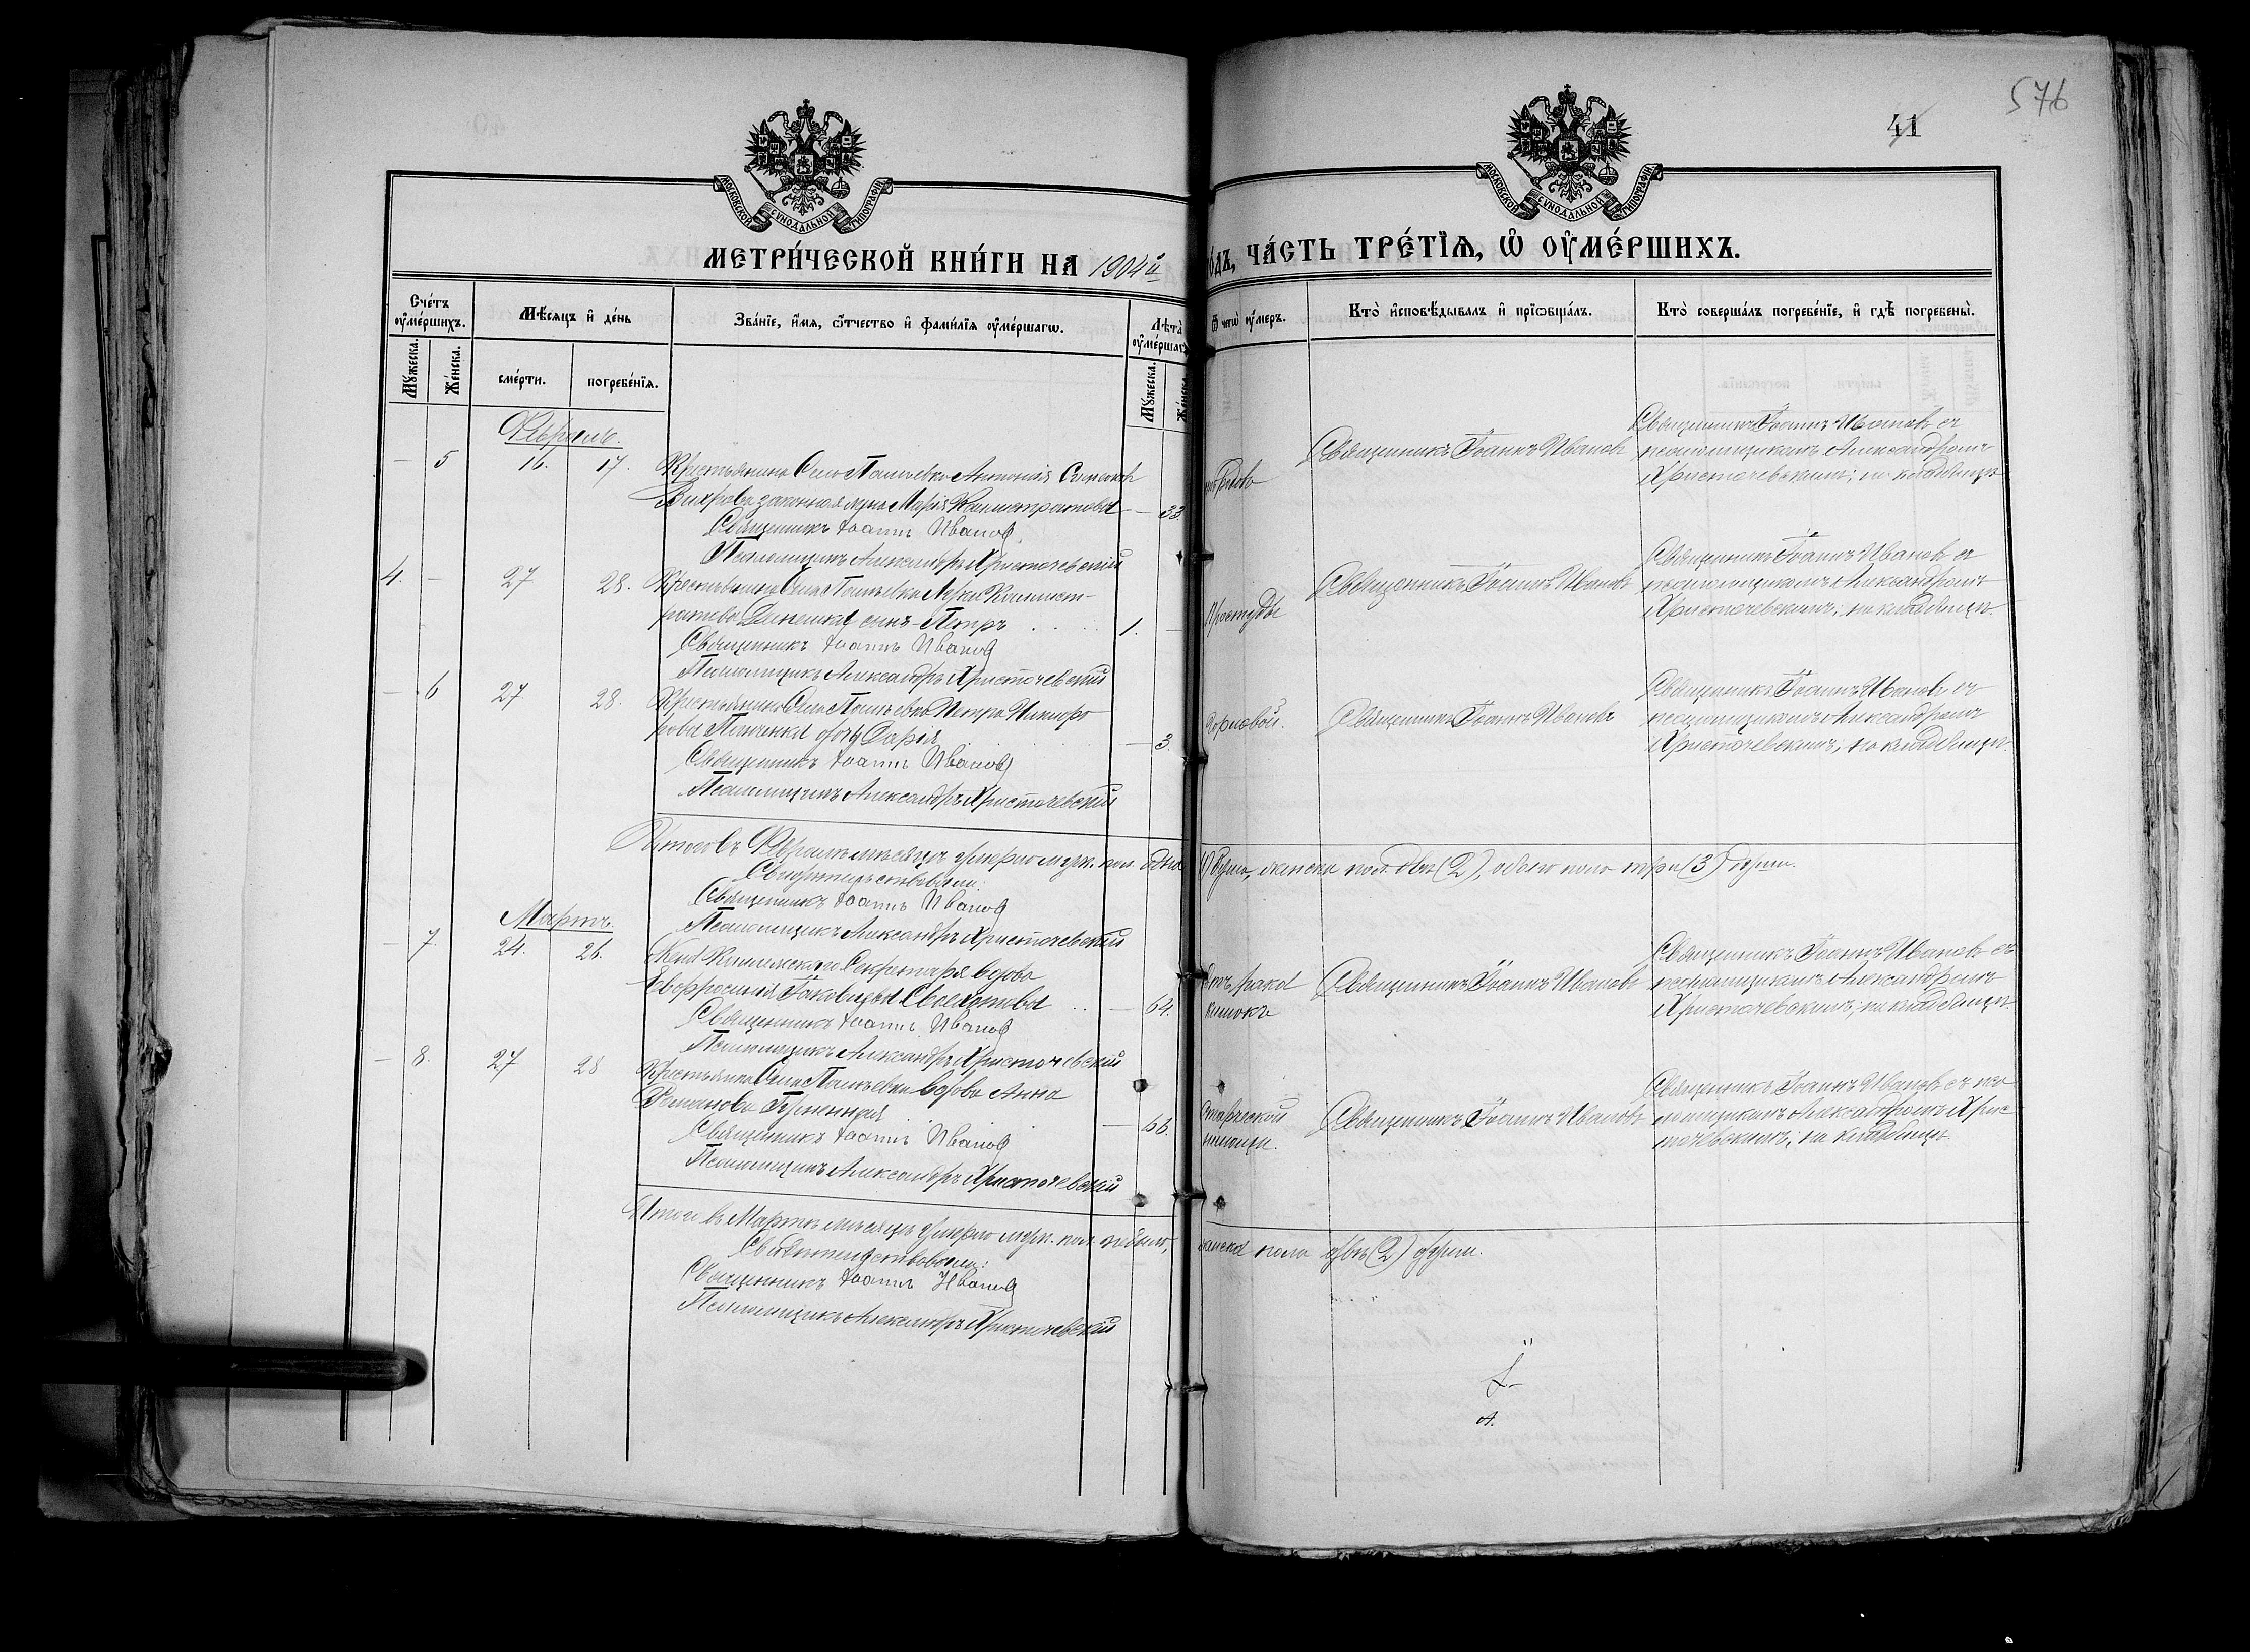 576
41
МОСКОВСКОЙ СѴНОДАЛЬНОЙ ТИПОГРАФІИ
МОСКОВСКОЙ СѴНОДАЛЬНОЙ ТИПОГРАФІИ
МЕТРИ́ЧЕСКОЙ КНИ́ГИ НА 1904й
о́дъ, ЧА́СТЬ ТРЕ́ТІѦ, Ѡ ОУМЕ́РШИХЪ.
Сче́тъ оуме́ршихъ.
Му́жеска.
Же́нска.
Мѣ́сяцъ и де́нь
сме́рти.
погребе́нїѧ.
Зва́нїе, и́мѧ, ѻ́тчество и фами́лїѧ оуме́ршагѡ.
Лѣ́та оуме́ршаг
Му́жеска.
Же́нска
Ѿ чегѡ̀ оу́меръ.
Кто̀ исповѣ́дывалъ и прїѡбща́лъ.
Кто̀ соверша́лъ погребе́нїе, и гдѣ̀ погребены̀.
Февраль.
— 5 16. 17.
законная жена Марія Калистратова — 33.
Священникъ Іоаннъ Иванов
Псаломщикъ Александръ Христочевскій
родовъ
Священникъ Іоаннъ Ивановъ
Священникъ Іоаннъ Ивановъ съ
псаломщикомъ Александромъ
Христочевскимъ; на кладбищѣ
4. — 27 28.
Крестьянина Села Калист-
ратова сынъ Петръ 1. —
Священникъ Іоаннъ Иванов
Псаломщикъ Александръ Христочевскій
Простуды
Священникъ Іоаннъ Ивановъ
Священникъ Іоаннъ Ивановъ съ
псаломщикомъ Александромъ
Христочевскимъ; на кладбищѣ.
— 6 27 28.
Крестьянина Села Петра Никифо-
рова дочь Дарія — 3.
Священникъ Іоаннъ Иванов
Псаломщикъ Александръ Христочевскій
Священникъ Іоаннъ Ивановъ
Священникъ Іоаннъ Ивановъ съ
псаломщикомъ Александромъ
Христочевскимъ; на кладбищѣ.
Итого въ Февралѣ мѣсяцѣ умерло муж. пол. одна (1) душа, женска пола двѣ (2), обоего пола три (3) души.
Свидѣтельствовали:
Священникъ Іоаннъ Иванов
Псаломщикъ Александръ Христочевскій
Мартъ.
— 7. 24. 26.
Секретаря вдова
Евфросинія Іаковлева — 64.
Священникъ Іоаннъ Иванов
Псаломщикъ Александръ Христочевскій
Отъ рака
кишокъ
Священникъ Іоаннъ Ивановъ
Священникъ Іоаннъ Ивановъ съ
псаломщикомъ Александромъ
Христочевскимъ; на кладбищѣ.
— 8. 27 28
Села вдова Анна
Романова — 66.
Священникъ Іоаннъ Иванов
Псаломщикъ Александръ Христочевскій
Старческой
немощи.
Священникъ Іоаннъ Ивановъ
Священникъ Іоаннъ Ивановъ съ пса-
ломщикомъ Александромъ Хрис-
точевскимъ; на кладбищѣ
Итого въ Мартѣ мѣсяцѣ умерло муж. пол. не было, женска пола двѣ (2) души.
Свидѣтельствовали:
Священникъ Іоаннъ Иванов
Псаломщикъ Александръ Христочевскій